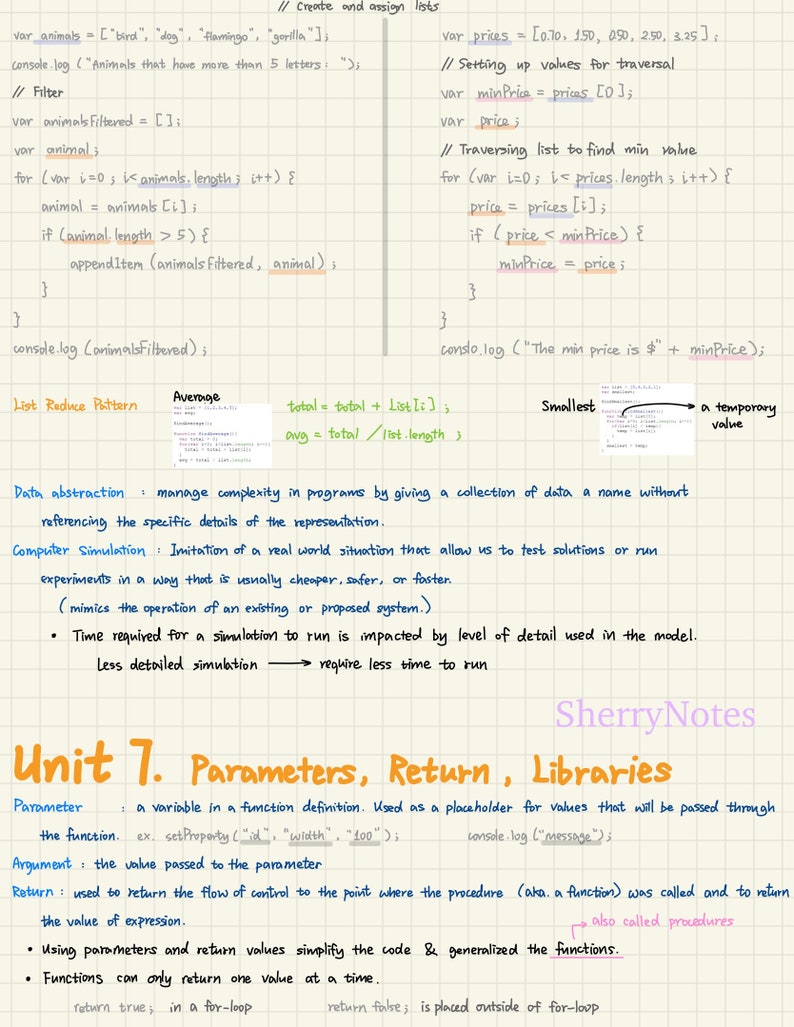 // Create and assign lists
var animals = ["bird", "dog", "flamingo", "gorilla"];
console.log ("Animals that have more than 5 letters: ");
// Filter
var animalsFiltered = [];
var animal;
for (var i=0; i<animals.length; i++) {
animal = animals[i];
if (animal.length > 5) {
appendItem (animalsFiltered, animal);
}
}
console.log (animalsFiltered);
var prices = [0.70, 1.50, 0.50, 2.50, 3.25];
// Setting up values for traversal
var minPrice = prices [0];
var price;
// Traversing list to find min value
for (var i=0; i< prices.length; i++) {
price = prices [i];
if (price < minPrice) {
minPrice = price;
}
}
conslo.log ("The min price is $" + minPrice);
List Reduce Pattern
Average
var list = [1,2,3,4,5];
var avg;
findAverage();
function findAverage(){
var total = 0;
for(var i=0; i<list.length; i++){
total = total + list[i];
}
avg = total / list.length;
}
total = total + List[i];
avg = total / list.length;
Smallest
var smallest;
findSmallest();
function findSmallest(){
var temp = list[0];
for(var i=0; i<list.length; i++){
if(list[i] < temp){
temp = list[i];
}
}
smallest = temp;
a temporary
value
Data abstraction : manage complexity in programs by giving a collection of data a name without
referencing the specific details of the representation.
Computer Simulation : Imitation of a real world situation that allow us to test solutions or run
experiments in a way that is usually cheaper, safer, or faster.
(mimics the operation of an existing or proposed system.)
• Time required for a simulation to run is impacted by level of detail used in the model.
Less detailed simulation → require less time to run
SherryNotes
Unit 7. Parameters, Return, Libraries
Parameter : a variable in a function definition. Used as a placeholder for values that will be passed through
the function. ex. setProperty ("id", "width", "100"); console.log ("message");
Argument : the value passed to the parameter
Return : used to return the flow of control to the point where the procedure (aka. a function) was called and to return
the value of expression.
also called procedures
• Using parameters and return values simplify the code & generalized the functions.
• Functions can only return one value at a time.
return true; in a for-loop return false; is placed outside of for-loop